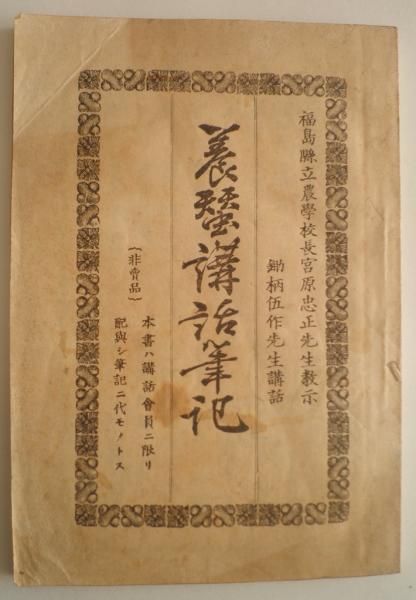 福島縣立農學校長宮原忠正先生教示
鋤柄伍作先生講話
養蚕講話筆記
(非賣品)
本書ハ講話會員ニ限リ
配與シ筆記ニ代モノトス